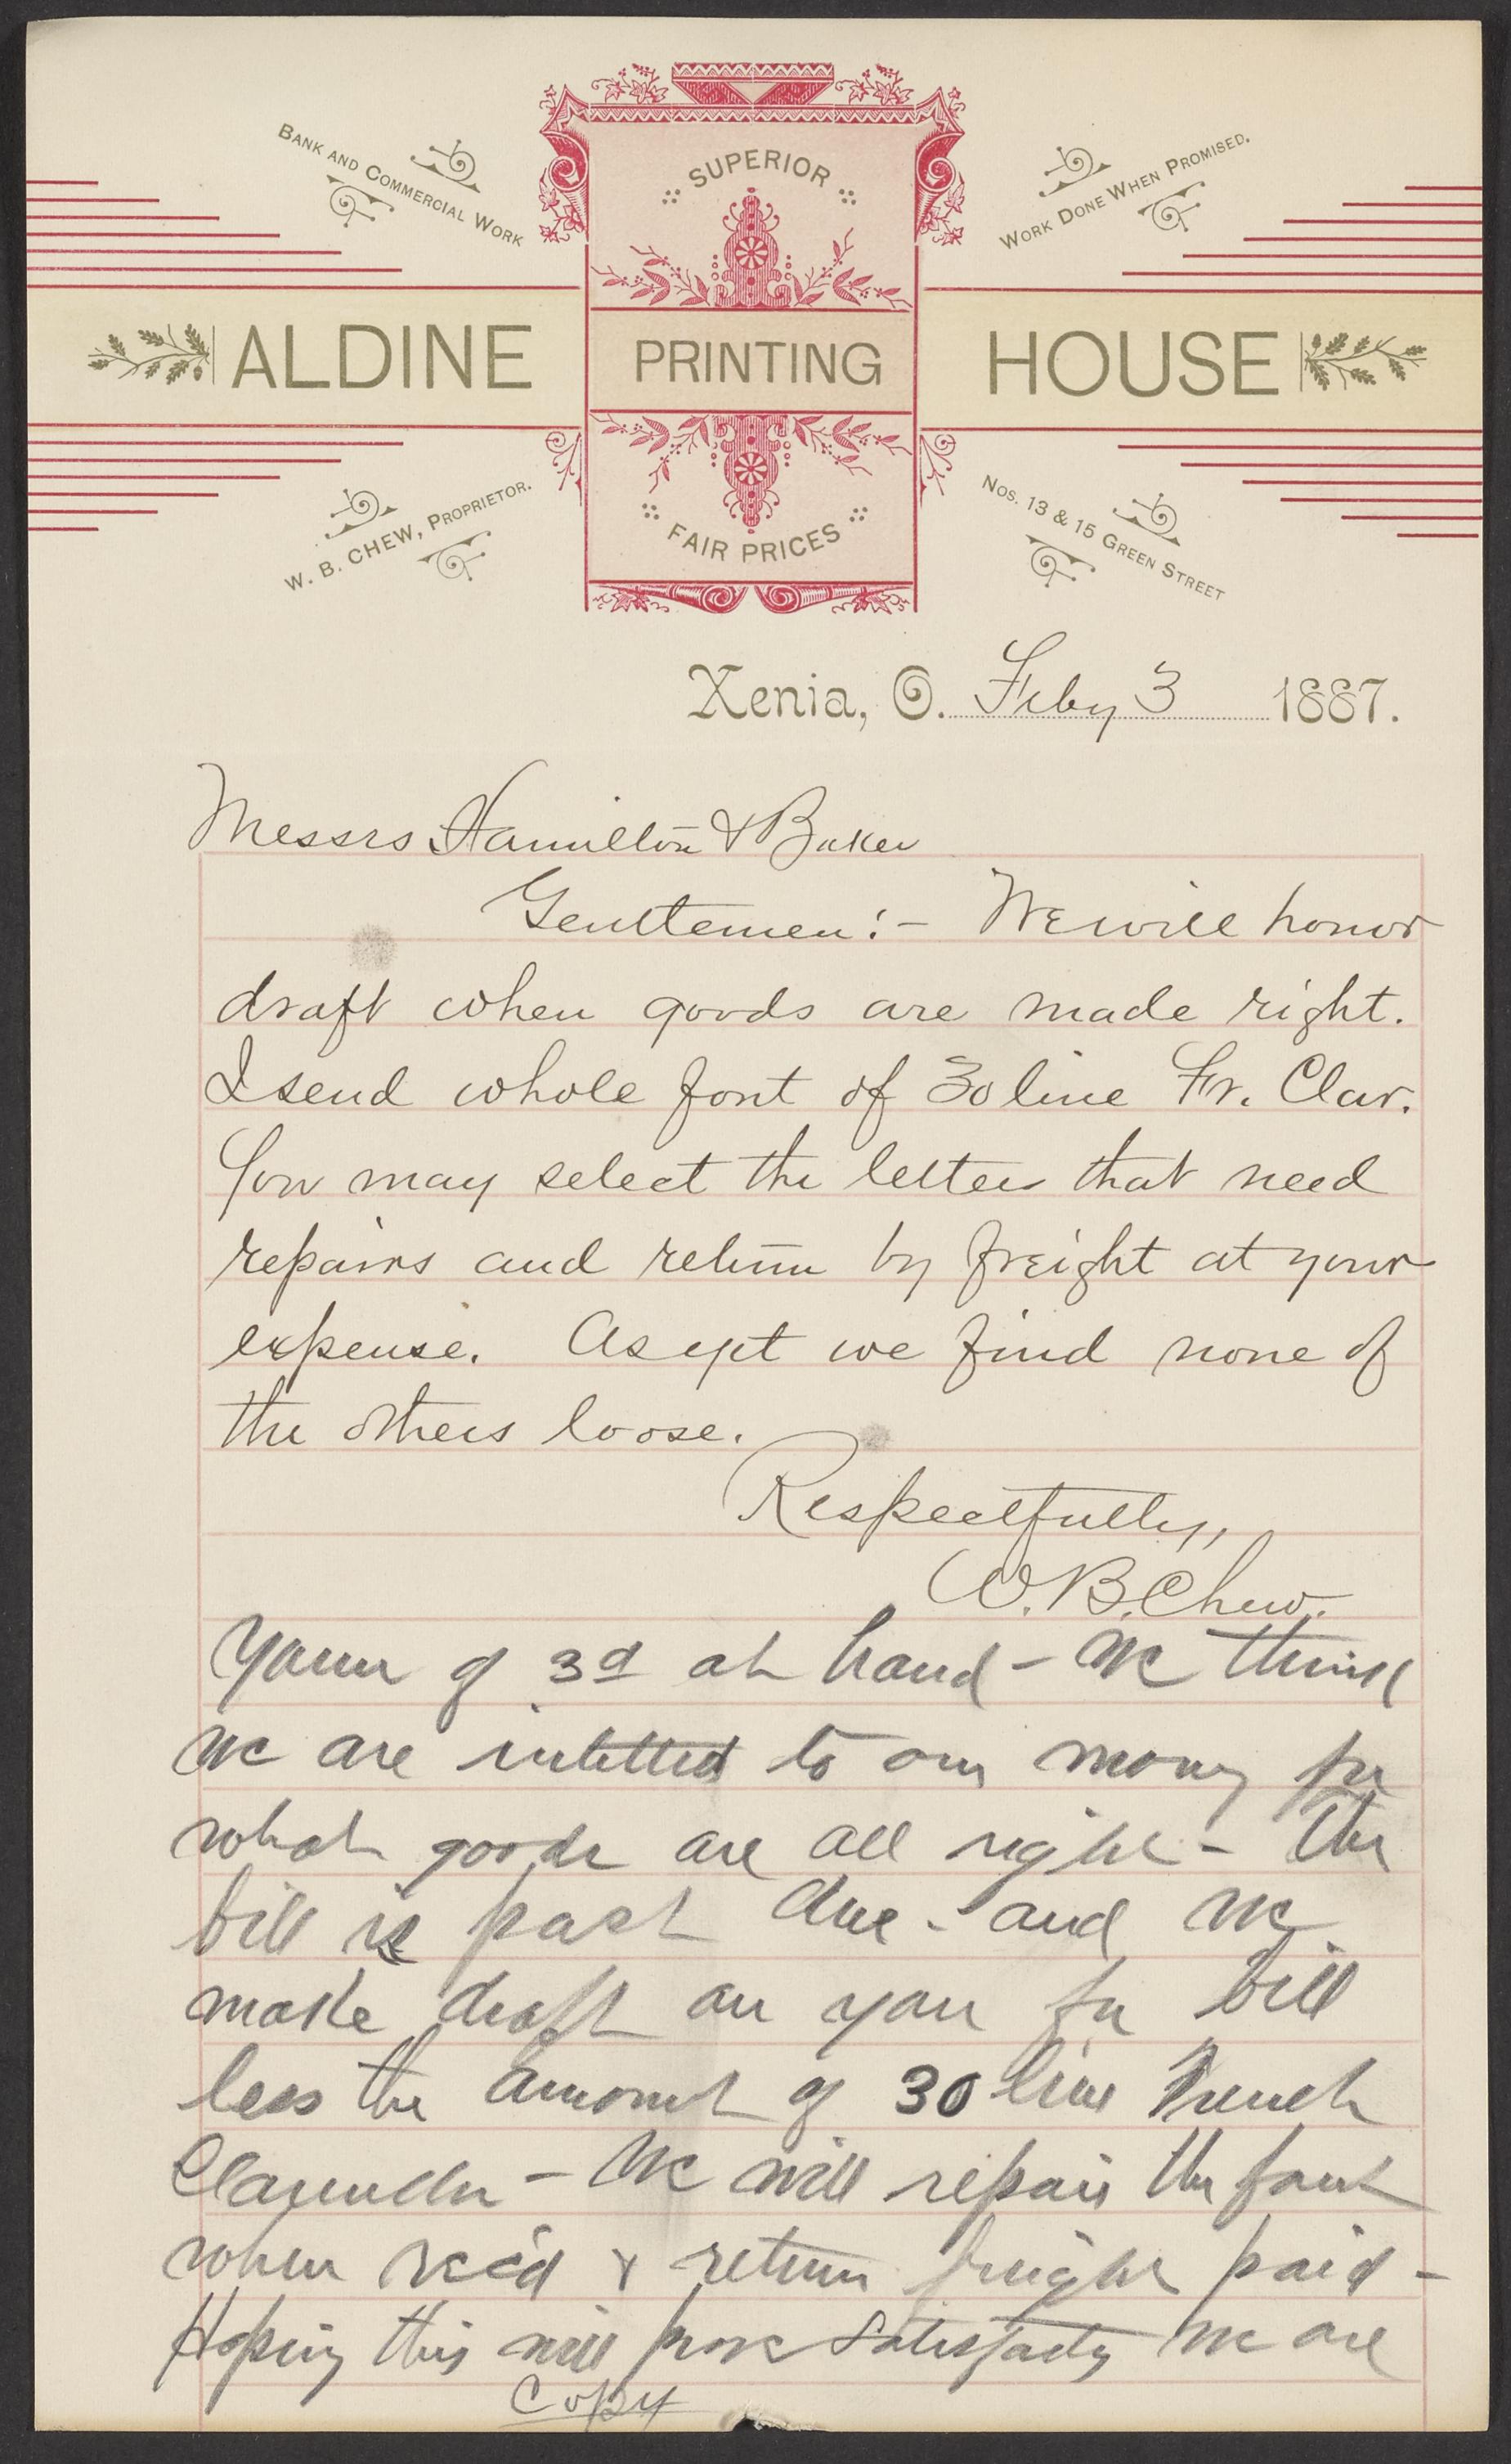 BANK AND COMMERCIAL WORK
SUPERIOR
WORK DONE WHEN PROMISED.
ALDINE PRINTING HOUSE
W. B. CHEW, PROPRIETOR.
FAIR PRICES
NOS. 13 & 15 GREEN STREET
Xenia, O. Feby 3 1887.
Messrs Hamilton & Baker
Gentlemen:- We will honor
draft when goods are made right.
I send whole font of 30 line Fr. Clar.
You may select the letters that need
repairs and return by freight at your
expense. As yet we find none of
the others loose.
Respectfully,
W. B. Chew.
Yours of 3d at hand - We think
we are intitled to our money for
what goods are all right - The
bill is past due - and we
make draft on you for bill
less the amount of 30 line French
Clarendon - We will repair the font
when rec'd & return freight paid -
Hoping this will prove satisfactory we are
Copy